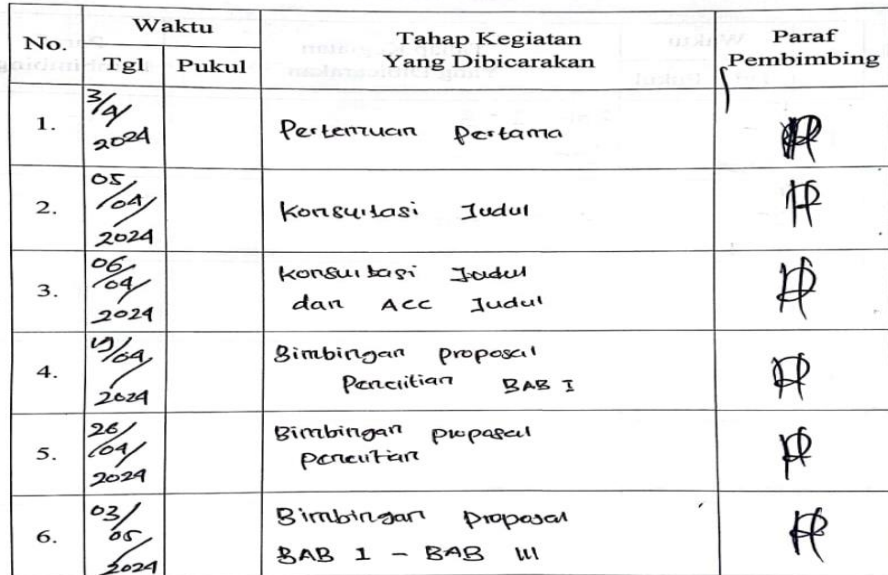 No. Waktu Tahap Kegiatan Yang Dibicarakan Paraf Pembimbing
Tgl Pukul
1. 3/4/2024 Pertemuan Pertama
2. 05/04/2024 Konsultasi Judul
3. 06/04/2024 Konsultasi Judul
dan Acc Judul
4. /04/2024 Bimbingan proposal
Penelitian BAB I
5. 26/04/2024 Bimbingan proposal
penelitian
6. 03/05/2024 Bimbingan proposal
BAB I - BAB III